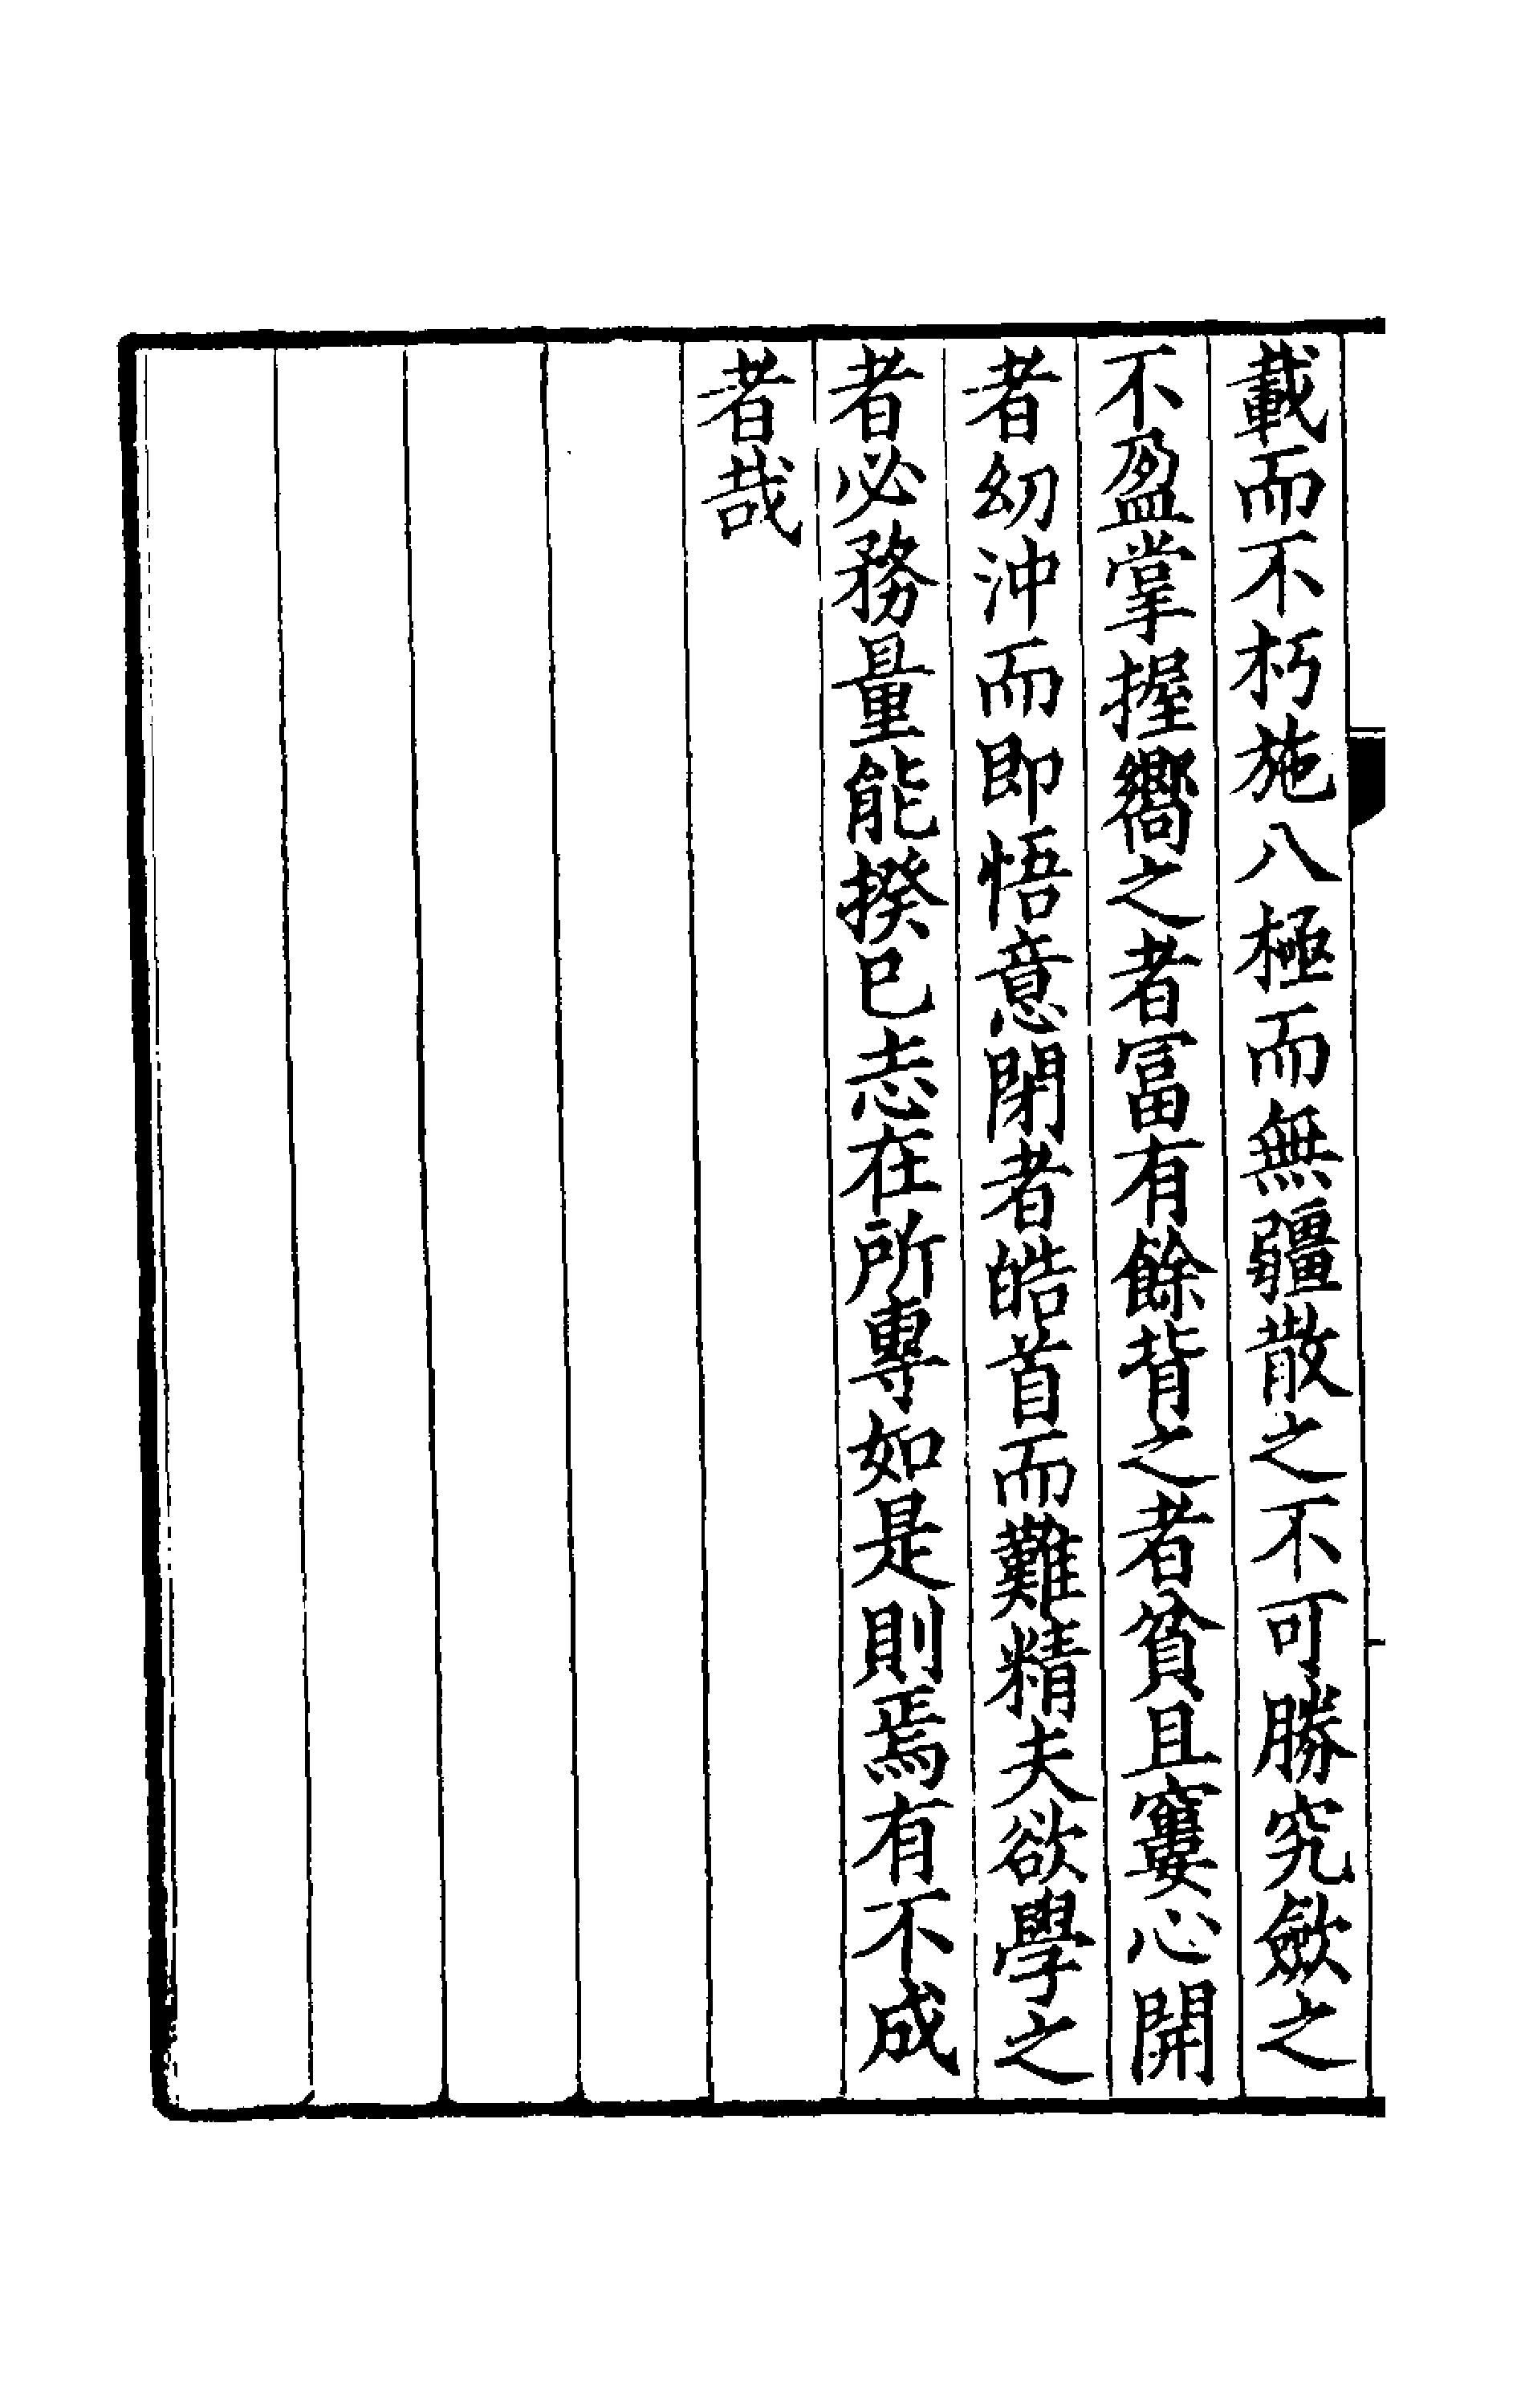 載而不朽施八極而無疆散之不可勝究斂之
不盈掌握嚮之者富有餘背之者貧且窶心開
者幼沖而即悟意閉者皓首而難精夫欲學之
者必務量能揆己志在所專如是則焉有不成
者哉